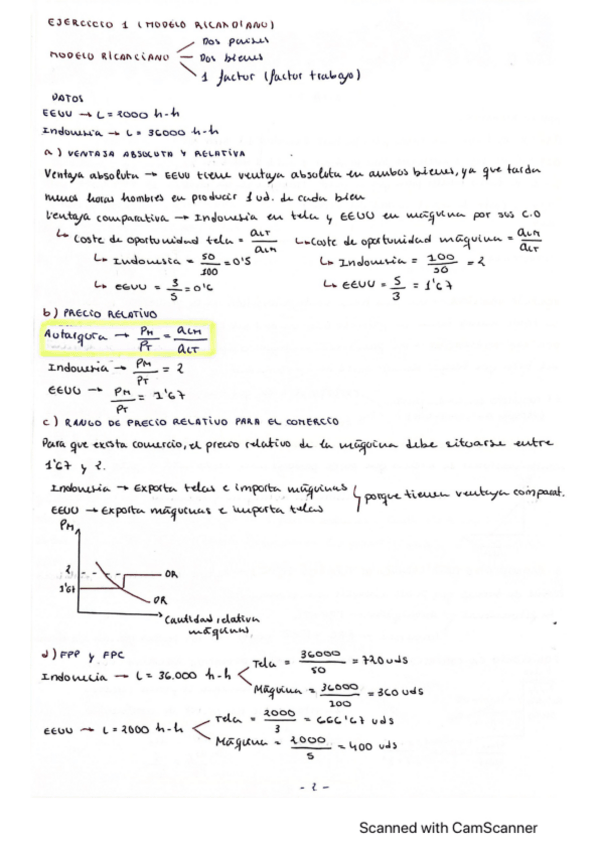 EJERCICIO 1 (MODELO RICARDIANO)
MODELO RICARCIANO
Dos países
Dos bienes
1 factor (factor trabajo)
DATOS
EEUU → L = 2000 h-h
Indonesia → L = 36000 h-h
a) VENTAJA ABSOLUTA Y RELATIVA
Ventaja absoluta → EEUU tiene ventaja absoluta en ambos bienes, ya que tarda
menos horas hombres en producir 1 ud. de cada bien
Ventaja comparativa → Indonesia en tela y EEUU en máquina por sus C.O
↳ Coste de oportunidad tela = aLT / aLM ↳ Coste de oportunidad máquina = aLM / aLT
↳ Indonesia = 50 / 100 = 0'5 ↳ Indonesia = 100 / 50 = 2
↳ EEUU = 3 / 5 = 0'6 ↳ EEUU = 5 / 3 = 1'67
b) PRECIO RELATIVO
Autarquía → PM / PT = aLM / aLT
Indonesia → PM / PT = 2
EEUU → PM / PT = 1'67
c) RANGO DE PRECIO RELATIVO PARA EL COMERCIO
Para que exista comercio, el precio relativo de la máquina debe situarse entre
1'67 y 2.
Indonesia → Exporta telas e importa máquinas
EEUU → Exporta máquinas e importa telas
porque tienen ventaja comparat.
PM
2
OR
1'67
DR
Cantidad relativa
máquinas
d) FPP y FPC
Indonecia → L = 36.000 h-h
Tela = 36000 / 50 = 720 uds
Máquina = 36000 / 100 = 360 uds
EEUU → L = 2000 h-h
Tela = 2000 / 3 = 666'67 uds
Máquina = 2000 / 5 = 400 uds
- 2 -
Scanned with CamScanner